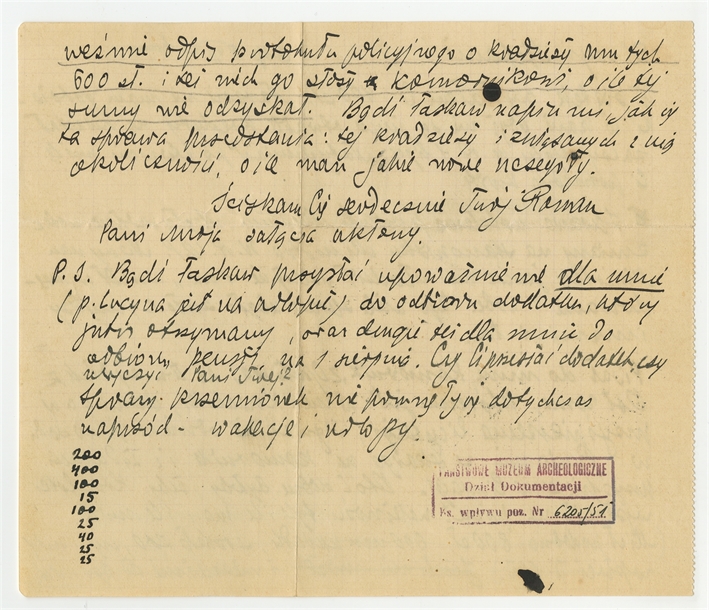 weźmie odpis protokułu policyjnego o kradzieży mu tych
600 zł. i tej niech go złoży komornikowi, o ile tej
sumy nie odzyskał. Bądź łaskaw napisz mi, jak się
ta sprawa przedstawia: tej kradzieży i związanych z nią
okoliczności, o ile masz jakie nowe szczegóły.
Ściskam Cię serdecznie Twój Roman
Pani moja załącza ukłony.
P.S. Bądź łaskaw przysłać upoważnienie dla mnie
(p. Lucyna jest na urlopie) do odbioru dodatku, który
jutro otrzymamy, oraz drugie też dla mnie do
odbioru pensji na 1 sierpnia. Czy Ci przesłać dodatek, czy
wręczyć Pani Twej?
Sprawy przeniórek nie posunęły się dotychczas
naprzód - wakacje i urlopy.
200
400
100
15
100
25
40
25
25
PAŃSTWOWE MUZEUM ARCHEOLOGICZNE
Dział Dokumentacji
Ks. wpływu poz. Nr 6205/51